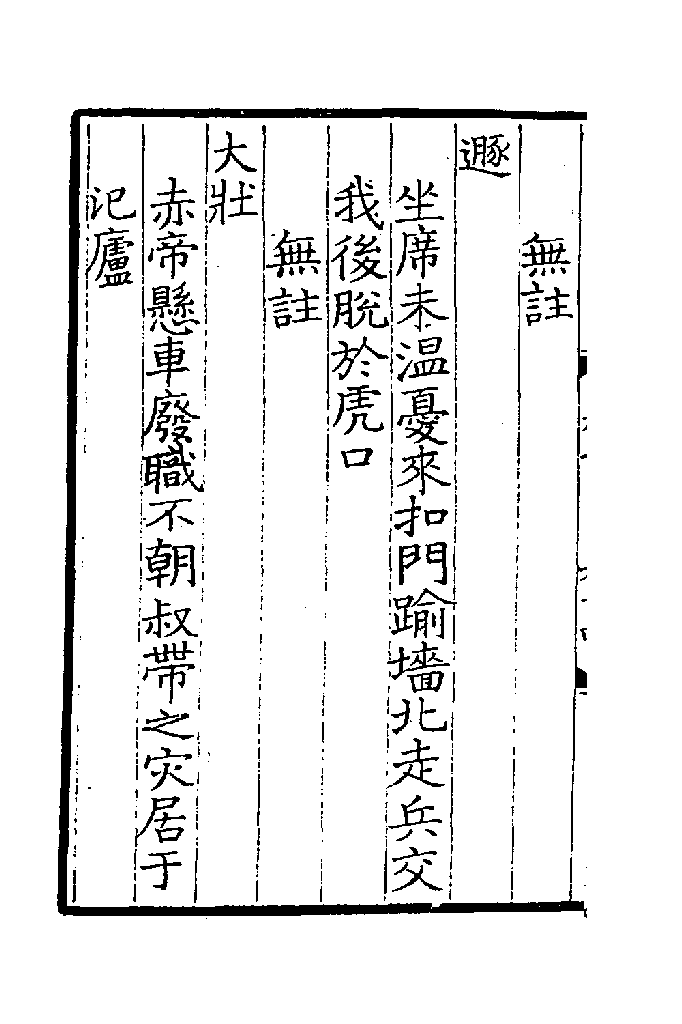 無註
遯
坐席未温憂來扣門踰墻北走兵交
我後脫於虎口
無註
大壯
赤帝懸車廢職不朝叔帶之灾居于
氾廬